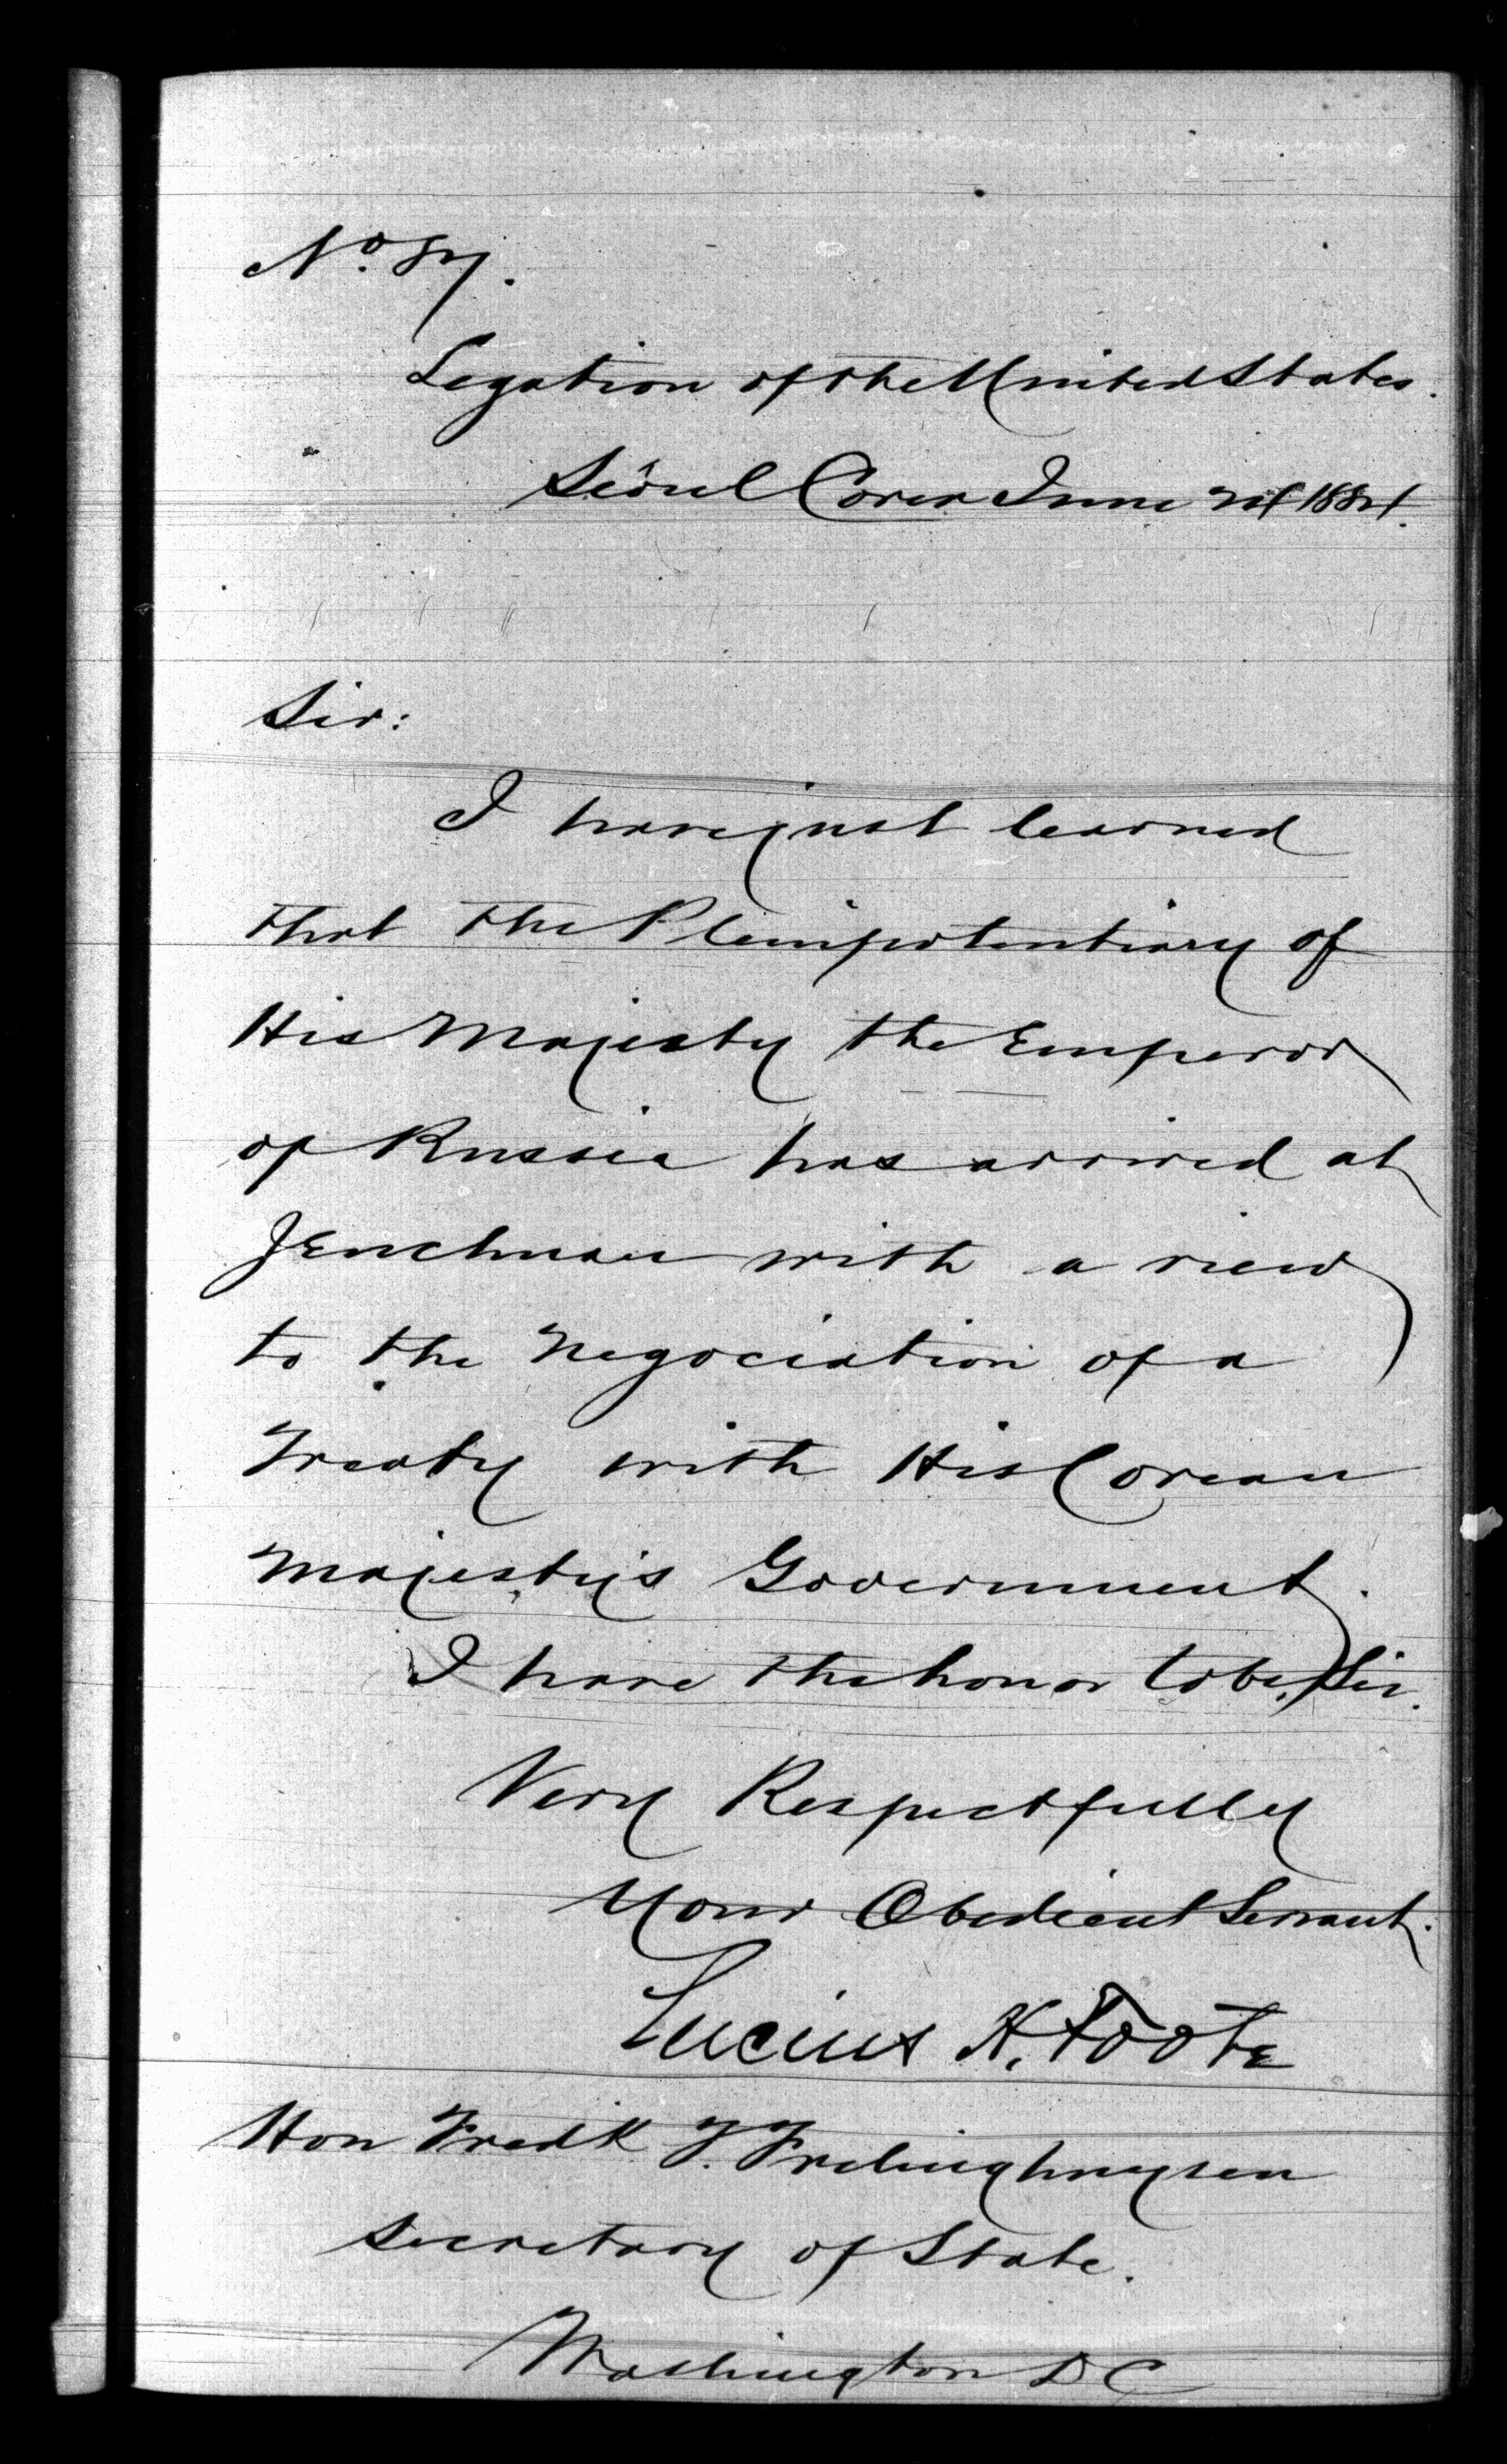 No. 87.
Legation of the United States.
Seôul Corea June 24 1884.
Sir:
I have just learned
that the Plenipotentiary of
His Majesty the Emperor
of Russia has arrived at
JEnchuan with a view
to the negociation of a
Treaty with His Corean
Majesty's Government.
I have the honor to be, Sir.
Very Respectfully
Your Obedient Servant.
Lucius H. Foote
Hon Fredk T. Frelinghuysen
Secretary of State.
Washington D C